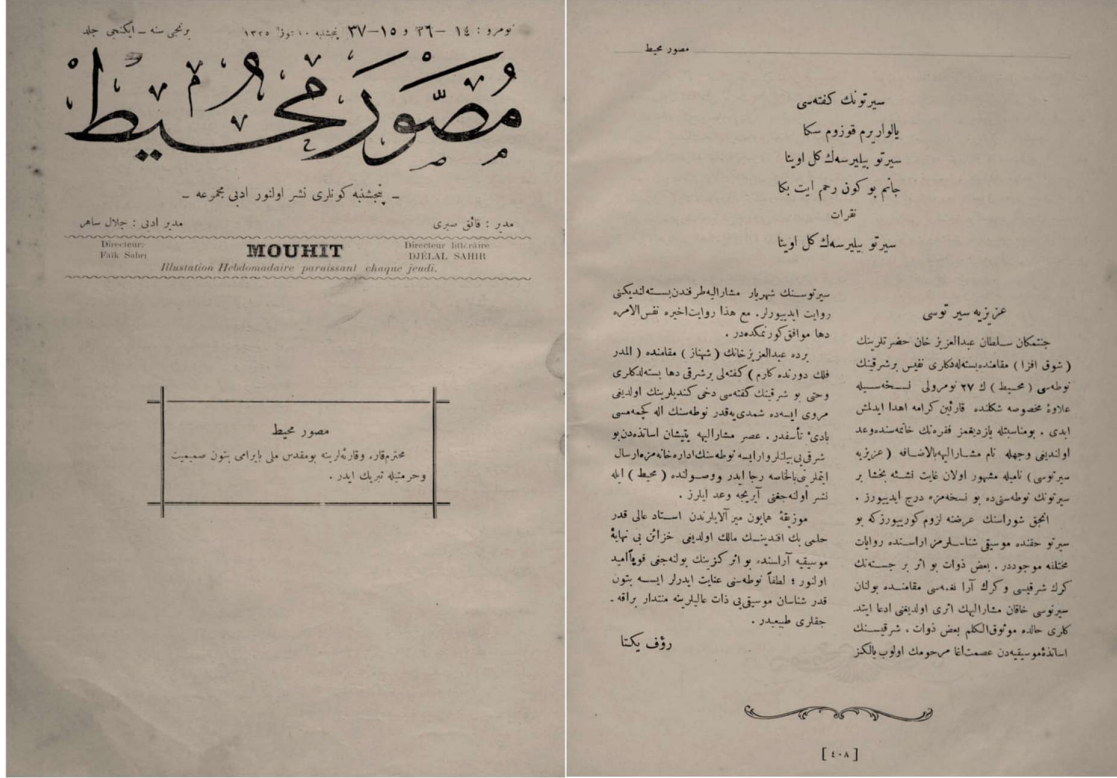 نومرو : ١٤ –٣٦ و ١٥–٣٧ پنجشنبه ١٠ تموز ١٣٢٥ برنجی سنه – ایكنجی جلد
مصوّر محیط
– پنجشنبه كونلری نشر اولنور ادبی مجموعه –
مدیر : فائق صبری مدیر ادبی : جلال ساهر
Directeur: Faik Sabri
MOUHIT
Directeur littéraire DJÉLAL SAHIR
Illustation Hebdomadaire paraissant chaque jeudi.
مصور محیط
محترم قاری وقارئه‌لرینه بومقدس ملی بایرامی بتون صمیمیت
وحرمتیله تبریك ایدر .
مصور محیط
سیرتونك كفته‌سی
یالواریرم قوزوم سكا
سیرتو بیلیرسه‌ك كل اوینا
جانم بو كون رحم ایت بكا
نقرات
سیرتو بیلیرسه‌ك كل اوینا
عزیزیه سیر توسی
جنتمكان سلطان عبدالعزیز خان حضرتلرینك
( شوق افزا ) مقامنده بسته‌لدكلری نفیس برشرقینك
نوطه‌سی ( محیط ) ك ٢٧ نومرولی نسخه‌سیله
علاوۀ مخصوصه شكلنده قارئین كرامه اهدا ایدلمش
ایدی . بومناسبتله یازدیغمز فقره‌نك خاتمه‌سنده وعد
اولندیغی وجهله نام مشارالیهه بالاضافه ( عزیزیه
سیرتوسی ) نامیله مشهور اولان غایت نشئه بخشا بر
سیرتونك نوطه‌سنی ده بو نسخه‌مزه درج ایدییورز .
انجق شوراسنك عرضنه لزوم كورییورزكه بو
سیرتو حقنده موسیقی شناسلرمز اراسنده روایات
مختلفه موجوددر . بعض ذوات بو اثر بر جسته‌نك
كرك شرقیسی و كرك آرا نغمه‌سی مقامنده بولنان
سیرتوسی خاقان مشارالیهك اثری اولدیغنی ادعا ایتد
كلری حالده موثوق‌الكلم بعض ذوات ، شرقیسنك
اساتذۀموسیقیه‌دن عصمت‌اغا مرحومك اولوب یالكز
سیرتوسنك شهریار مشارالیه طرفندن بسته‌لندیكنی
روایت ایدییورلر . مع هذا روایت اخیره نفس‌الامره
دها موافق كورنمكده‌در .
برده عبدالعزیز خانك ( شهناز ) مقامنده ( المدر
فلك دورنده كارم ) كفته‌لی برشرقی دها بسته‌لدكلری
وحتی بو شرقینك كفته‌سی دخی كندیلرینك اولدیغی
مروی ایسه‌ده شمدی‌یه‌قدر نوطه‌سنك اله كچمه‌مسی
بادیٔ تأسفدر . عصر مشارالیهه یتیشان اساتذه‌دن‌بو
شرقی‌یی بیلنلر وارایسه نوطه‌سنك اداره‌خانه‌مزه‌ارسال
ایتملرینی بالخاصه رجا ایدر ووصولنده ( محیط ) ایله
نشر اولنه‌جغنی آیریجه وعد ایلرز .
موزیقۀ همایون میر آلایلرندن استاد عالی قدر
حلمی بك افندینك مالك اولدیغی خزائن بی نهایۀ
موسیقیه آراسنده بو اثر كزینك بولنه‌جغی قویاً امید
اولنور ؛ لطفاً نوطه‌سنی عنایت ایدرلر ایسه بتون
قدر شناسان موسیقی‌یی ذات عالیلرینه منتدار براقه -
جقلری طبیعیدر .
رؤف یكتا
[ ٤٠٨ ]